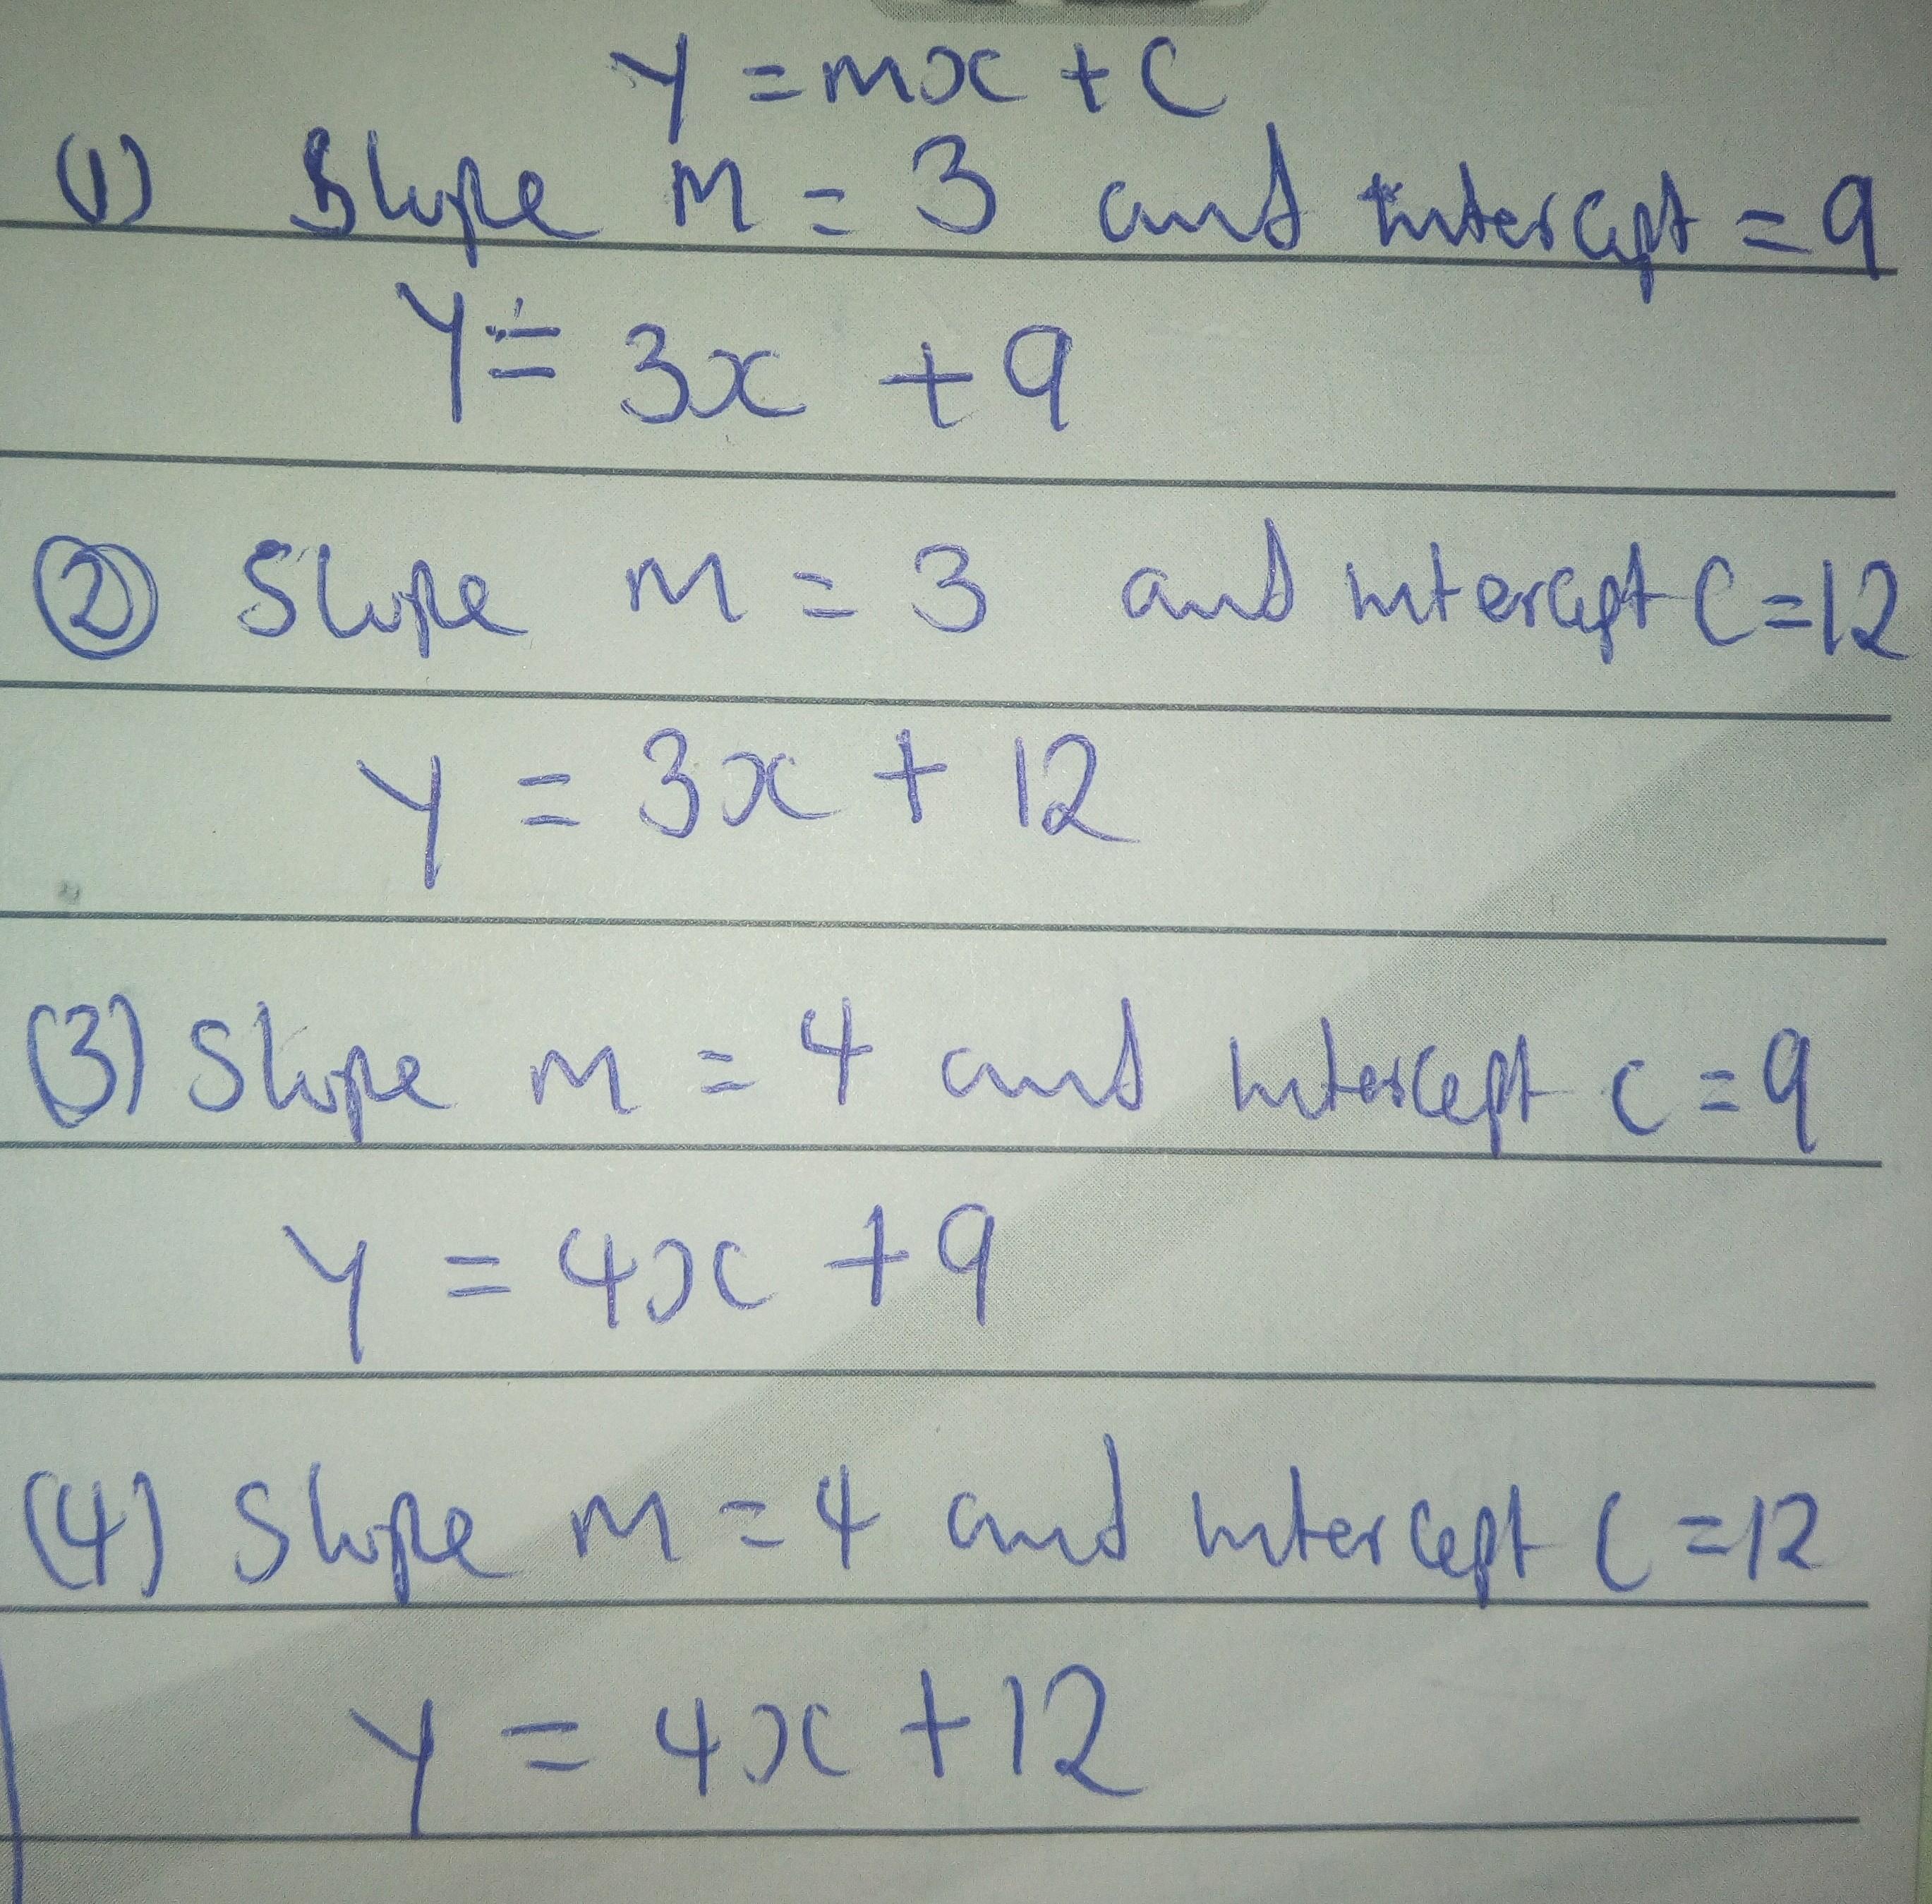 y = mx + c
(1) Slope m = 3 and intercept = 9
y = 3x + 9
(2) Slope m = 3 and intercept c = 12
y = 3x + 12
(3) Slope m = 4 and intercept c = 9
y = 4x + 9
(4) Slope m = 4 and intercept c = 12
y = 4x + 12